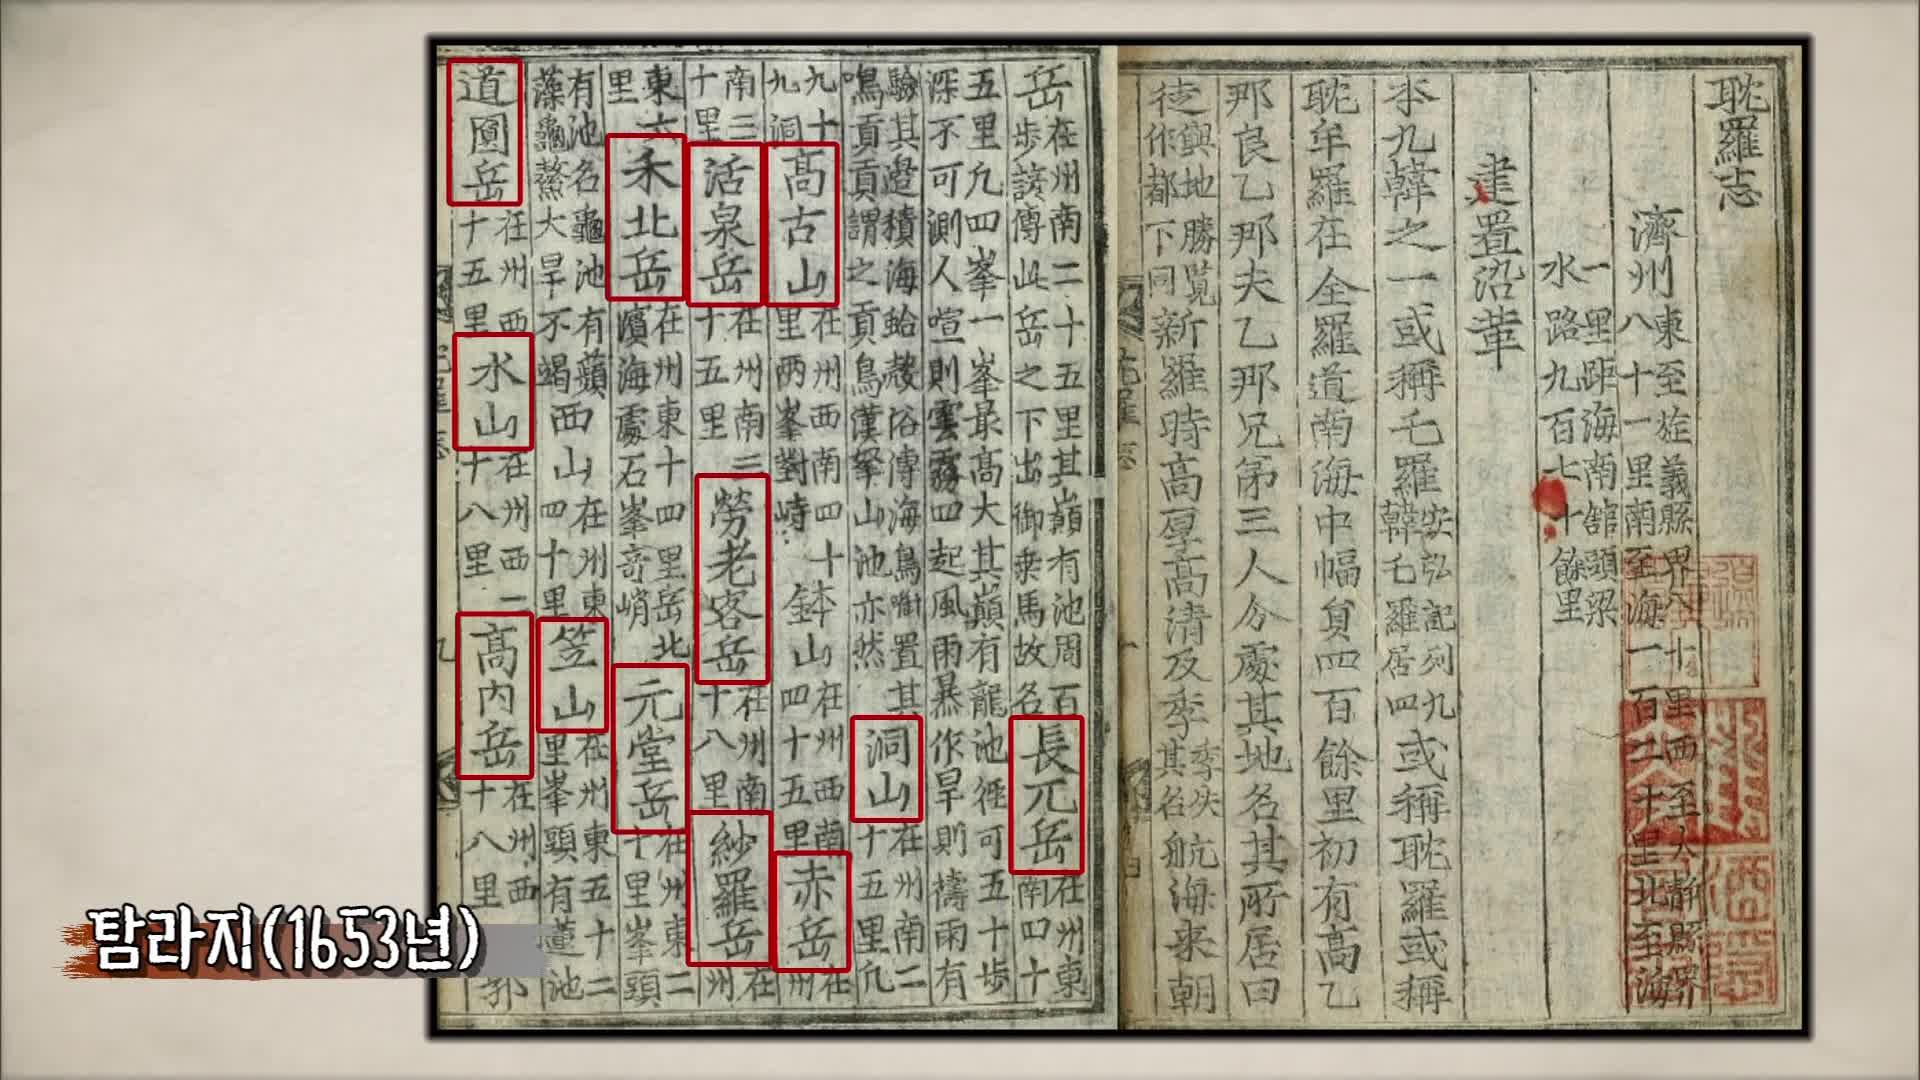 耽羅志
濟州東至旌義縣界八十里西至大靜縣界
八十一里南至海一百二十里北至海
一里距海南舘頭梁
水路九百七十餘里
建置沿革
本九韓之一或稱乇羅安弘記列九韓乇羅居四或稱耽羅或稱
耽牟羅在全羅道南海中幅員四百餘里初有高乙
那良乙那夫乙那兄弟三人分處其地名其所居曰
徒與地勝覧作都下同新羅時高厚高清及季季失其名航海來朝
岳在州南二十五里其巓有池周百步諺傳此岳之下出御乗馬故名長兀岳在州東南四十
五里凡四峯一峯最髙大其巓有龍池徑可五十步
深不可測人喧則雲霧四起風雨暴作旱則禱雨有
驗其邉積海蛤殼俗傳海鳥㘅置其
鳴貢貢謂之貢鳥漢拏山池亦然洞山在州南二十五里凡
九十九洞髙古山在州西南四十里两峯對峙鉢山在州西南四十五里赤岳在州
南三十里活泉岳在州南二十五里勞老客岳在州南十八里紗羅岳在州
東六里禾北岳在州東十四里岳北濱海處石峯奇峭元堂岳在州東二十里峯頭
有池名龜池有蘋藻龜鱉大旱不竭西山在州東四十里笠山在州東五十二里峯頭有蓮池
道圓岳在州西十五里水山在州西十八里髙内岳在州西十八里郭
탐라지(1653년)